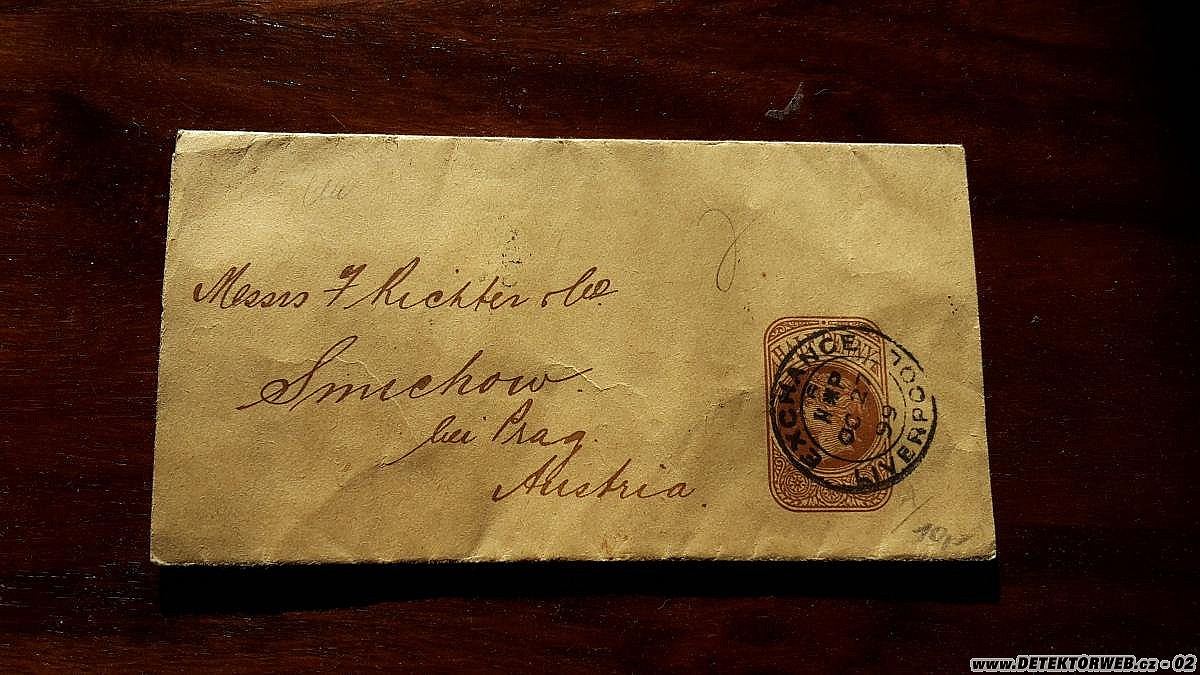 Messrs F Richter & Co.
Smichow.
bei Prag.
Austria.
HALFPENNY
EXCHANGE LIVERPOOL
OC 2
99
www.DETEKTORWEB.cz - 02